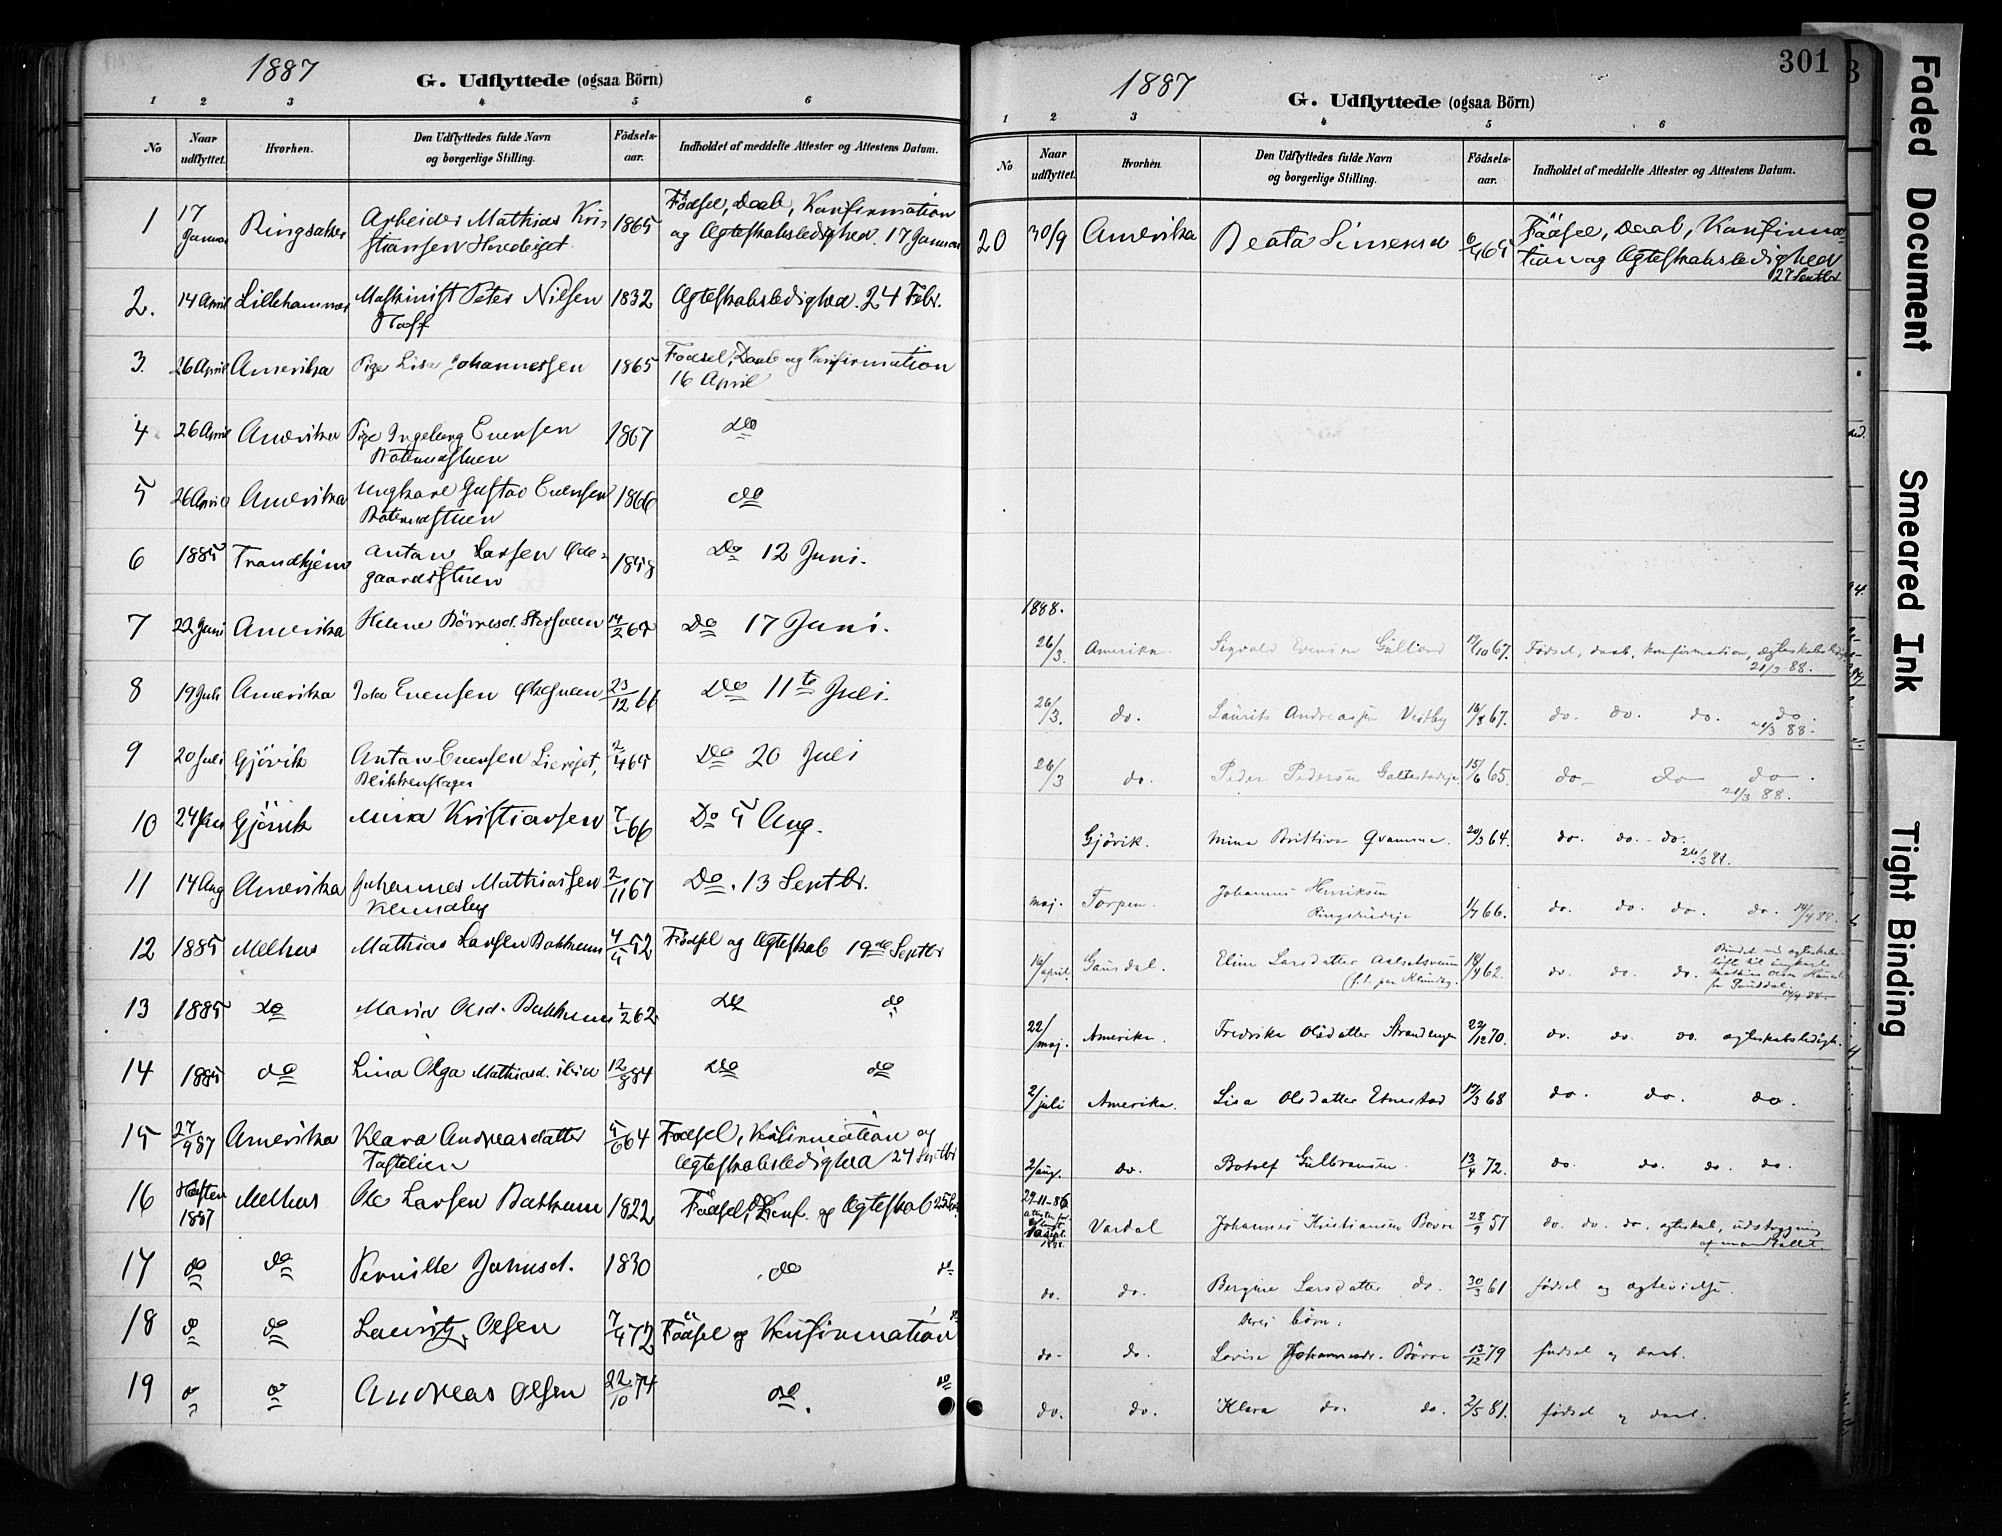 1887
G. Udflyttede (ogsaa Börn)
1 2 3 4 5 6
No
Naar udflyttet.
Hvorhen.
Den Udflyttedes fulde Navn og borgerlige Stilling.
Fødsels-aar.
Indholdet af meddelte Attester og Attestens Datum.
1 17 Januar Ringsaker Arbeider Mathias Kri- 1865 Födsel, Daab, Konfirmation
stiansen og Ægteskabsledighed. 17 Januar
2. 14 April Lillehammer Maskinist Peter Nilsen 1832 Ægteskabsledighed. 24 Febr.
3. 26 April Amerika Pige Lisa Johannessen 1865 Födsel, Daab og Konfirmation
16 April
4 26 April Amerika Pige Ingeborg Evensen 1867 do
5 26 April Amerika Ungkarl Gustav Evensen 1866 do
6 1885 Trondhjem Anton Larsen Øde- 1858 Do 12 Juni.
gaardsstuen
7 22 Juni Amerika Helene Börresd. 65 Do 17 Juni.
8 19 Juli Amerika Evensen 23/12 66 Do 11te Juli.
9 20 Juli Gjövik Anton Evensen 2/4 65 Do 20 Juli
Blikkenslager
10 Gjövik Mina Kristiansen 66 Do 5 Aug.
11 14 Aug Amerika Johannes Mathiassen 2/11 67 Do. 13 Septbr.
Klundby
12 1885 Melhus Mathias Larsen Bakkum 52 Födsel og Ægteskab 19de Septbr
13 1885 do Maria Olsd. Bakkum 62 do do
14 1885 do Lina Olga Mathiasd. 12/8 84 do do
15 27/9 87 Amerika Klara Andreasdatter 5/6 64 Födsel, Konfirmation og
Ægteskabsledighed 24 Septbr
16 Høsten 1887 Melhus Ole Larsen Bakkum 1822 Födsel, Konf. og Ægteskab
17 do do Pernille Johnsd. 1830 do do
18 do do Lauritz Olsen 7/4 72 Födsel og Konfirmation
19 do do Andreas Olsen 22/10 74 do do
301
1887
G. Udflyttede (ogsaa Börn)
1 2 3 4 5 6
No
Naar udflyttet.
Hvorhen.
Den Udflyttedes fulde Navn og borgerlige Stilling.
Fødsels-aar.
Indholdet af meddelte Attester og Attestens Datum.
20 30/9 Amerika Beata Simensd 6/4 65 Födsel, Daab, Konfirma-
tion og Ægteskabsledighed
27 Septbr
1888.
26/3. Amerika. Sigvald Evensen 12/10 67. Fødsel, daab, konfirmation,
21/3 88.
26/3. do. Laurits Andreassen Vestby 16/8 67. do. do. do. do.
21/3 88.
26/3 do. Peder Pedersen 15/6 65. do do do
21/3 88.
Gjövik. Mina 20/3 64. do. do. do.
maj. Torpen. Johannes Henriksen 1/7 66. do. do. do. do. 14/4 88.
april. Gausdal. Eline Larsdatter 18/4 62. do. do. do.
22/maj. Amerika. Fredrika Olsdatter Strandengen 22/12 70. do. do. do.
2/juli Amerika. Lisa Olsdatter 17/3 68 do. do. do.
2/aug. do. Botolf Gulbransen. 13/4 72. do. do. do. do.
29-11-86 Vardal Johannes Kristiansen 28/9 51 do. do. do. ægteskab, udstrygning
af mandtallet.
do. do. Bergine Larsdatter do. 30/3 61 fødsel og
Deres börn:
do. do. Lovise Johannesdr. Börre 13/12 79 fødsel og daab.
do. do. Klara do. do. 2/5 81. fødsel og daab.
Faded Document
Smeared Ink
Tight Binding